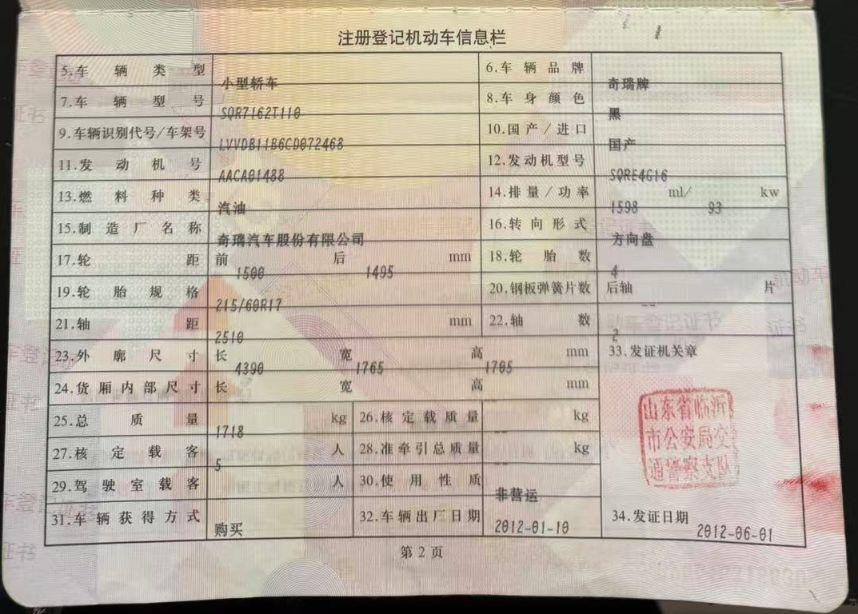 注册登记机动车信息栏
5.车辆类型 小型轿车 6.车辆品牌 奇瑞牌
7.车辆型号 SQR7162T110 8.车身颜色 黑
9.车辆识别代号/车架号 LVVDB11B6CD072468 10.国产/进口 国产
11.发动机号 AACA01488 12.发动机型号 SQRE4G16
13.燃料种类 汽油 14.排量/功率 1598 ml/ 93 kw
15.制造厂名称 奇瑞汽车股份有限公司 16.转向形式 方向盘
17.轮距 前 1500 后 1495 mm 18.轮胎数 4
19.轮胎规格 215/60R17 20.钢板弹簧片数 后轴 -- 片
21.轴距 2510 mm 22.轴数 2
23.外廓尺寸 长 4390 宽 1765 高 1705 mm 33.发证机关章
24.货厢内部尺寸 长 宽 高 mm
25.总质量 1718 kg 26.核定载质量 kg
27.核定载客 5 人 28.准牵引总质量 kg
29.驾驶室载客 人 30.使用性质 非营运
31.车辆获得方式 购买 32.车辆出厂日期 2012-01-10 34.发证日期 2012-06-01
山东省临沂
市公安局交
通警察支队
第2页